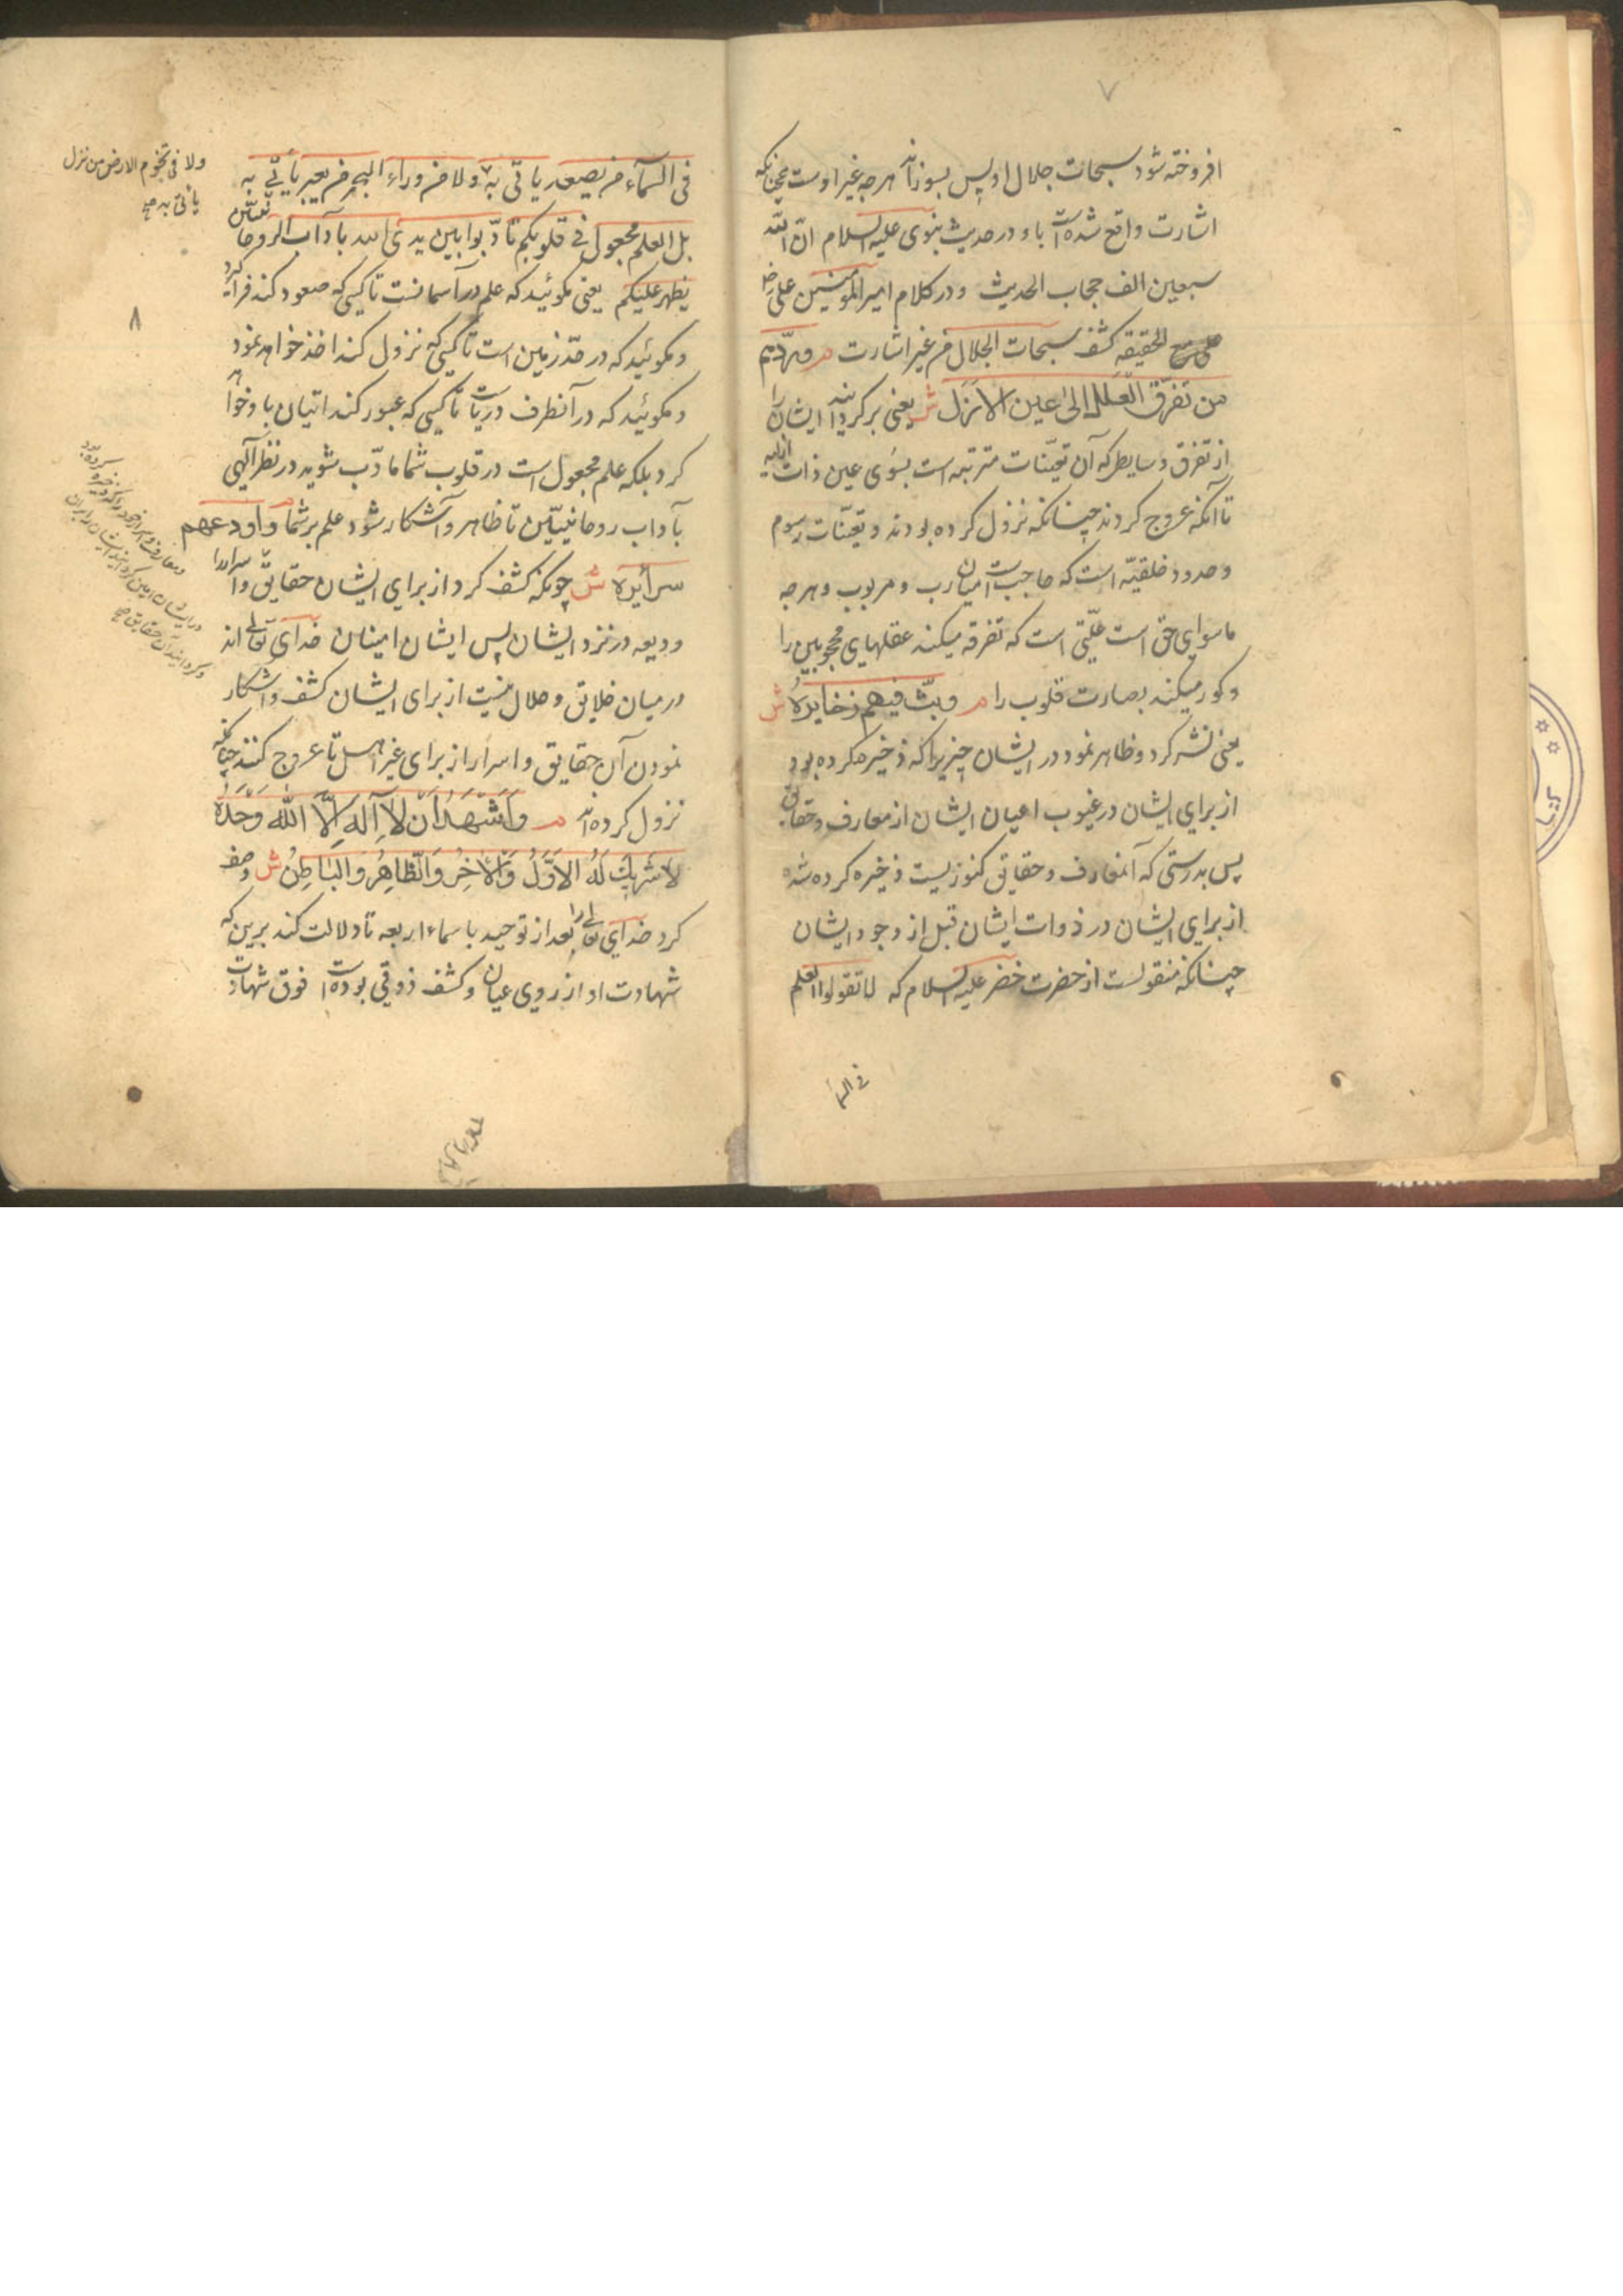 ۷
افروخته شود سبحات جلال او پس بسوزاند هر چه غیر اوست چنانکه
اشارت واقع شده است باو در حدیث نبوی علیه السلام ان لله
سبعین الف حجاب الحدیث و در کلام امیر المومنین علی رض
الحقیقه کشف سبحات الجلال من غیر اشارت م وردّهم
من تفرّق العلل الی عین الازل ش یعنی برگردانید ایشان را
از تفرق وسایط که آن تعیّنات مترتبه است بسوی عین ذات ازلیه
تا آنکه عروج کردند چنانکه نزول کرده بودند و تعیّنات رسوم
و حدود خلقیّه است که حاجبست میان رب و مربوب و هر چه
ماسوای حق است علّتی است که تفرقه میکند عقلهای محجوبین را
و کور میکند بصارت قلوب را م وبثّ فیهم ذخایره ش
یعنی نشر کرد و ظاهر نمود در ایشان چیزیرا که ذخیره کرده بود
از برای ایشان در غیوب اعیان ایشان از معارف و حقایق
پس بدرستی که آنمعارف و حقایق کنوزیست ذخیره کرده شده
از برای ایشان در ذوات ایشان قبل از وجود ایشان
چنانکه منقولست از حضرت خضر علیه السلام که لا تقولوا العلم
فی السما
۸
فی السمآء من یصعد یاتی به ولا من وراء البحر من یعبر یأتی به
ولا فی تخوم الارض من نزل
یاتی به صح
بل العلم مجعول فی قلوبکم تادّبوا بین یدی الله بآداب الروحانیّین
یظهر علیکم یعنی مگوئید که علم در آسمانست تا کسی که صعود کند فرا گیرد
و مگوئید که در حدّ زمین است تا کسی که نزول کند اخذ خواهد نمود
و مگوئید که در آنطرف دریاست تا کسی که عبور کند اتیان باو خواهد
کرد بلکه علم مجعول است در قلوب شما مادّب شوید در نظر آلهی
بآداب روحانیّین تا ظاهر و آشکار شود علم بر شما م واودعهم
سرائره ش چونکه کشف کرد از برای ایشان حقایق و اسرار را
ودیعه در نزد ایشان پس ایشان امینان خدای تعالی اند
در میان خلایق و حلال نیست از برای ایشان کشف و آشکار
نمودن آن حقایق و اسرار از برای غیر اهل تا عروج کنند چنانکه
نزول کرده اند م وَاَشْهَدُ اَنْ لا اِلٰهَ اِلّا اللّٰهُ وَحْدَهُ
لا شَریكَ لَهُ الاَوَّلُ وَالآخِرُ وَالظّاهِرُ وَالباطِنُ ش وصف
کرد خدای تعالی را بعد از توحید باسماء اربعه تا دلالت کند برین که
شهادت او از روی عیان و کشف ذوقی بوده است فوق شهادت